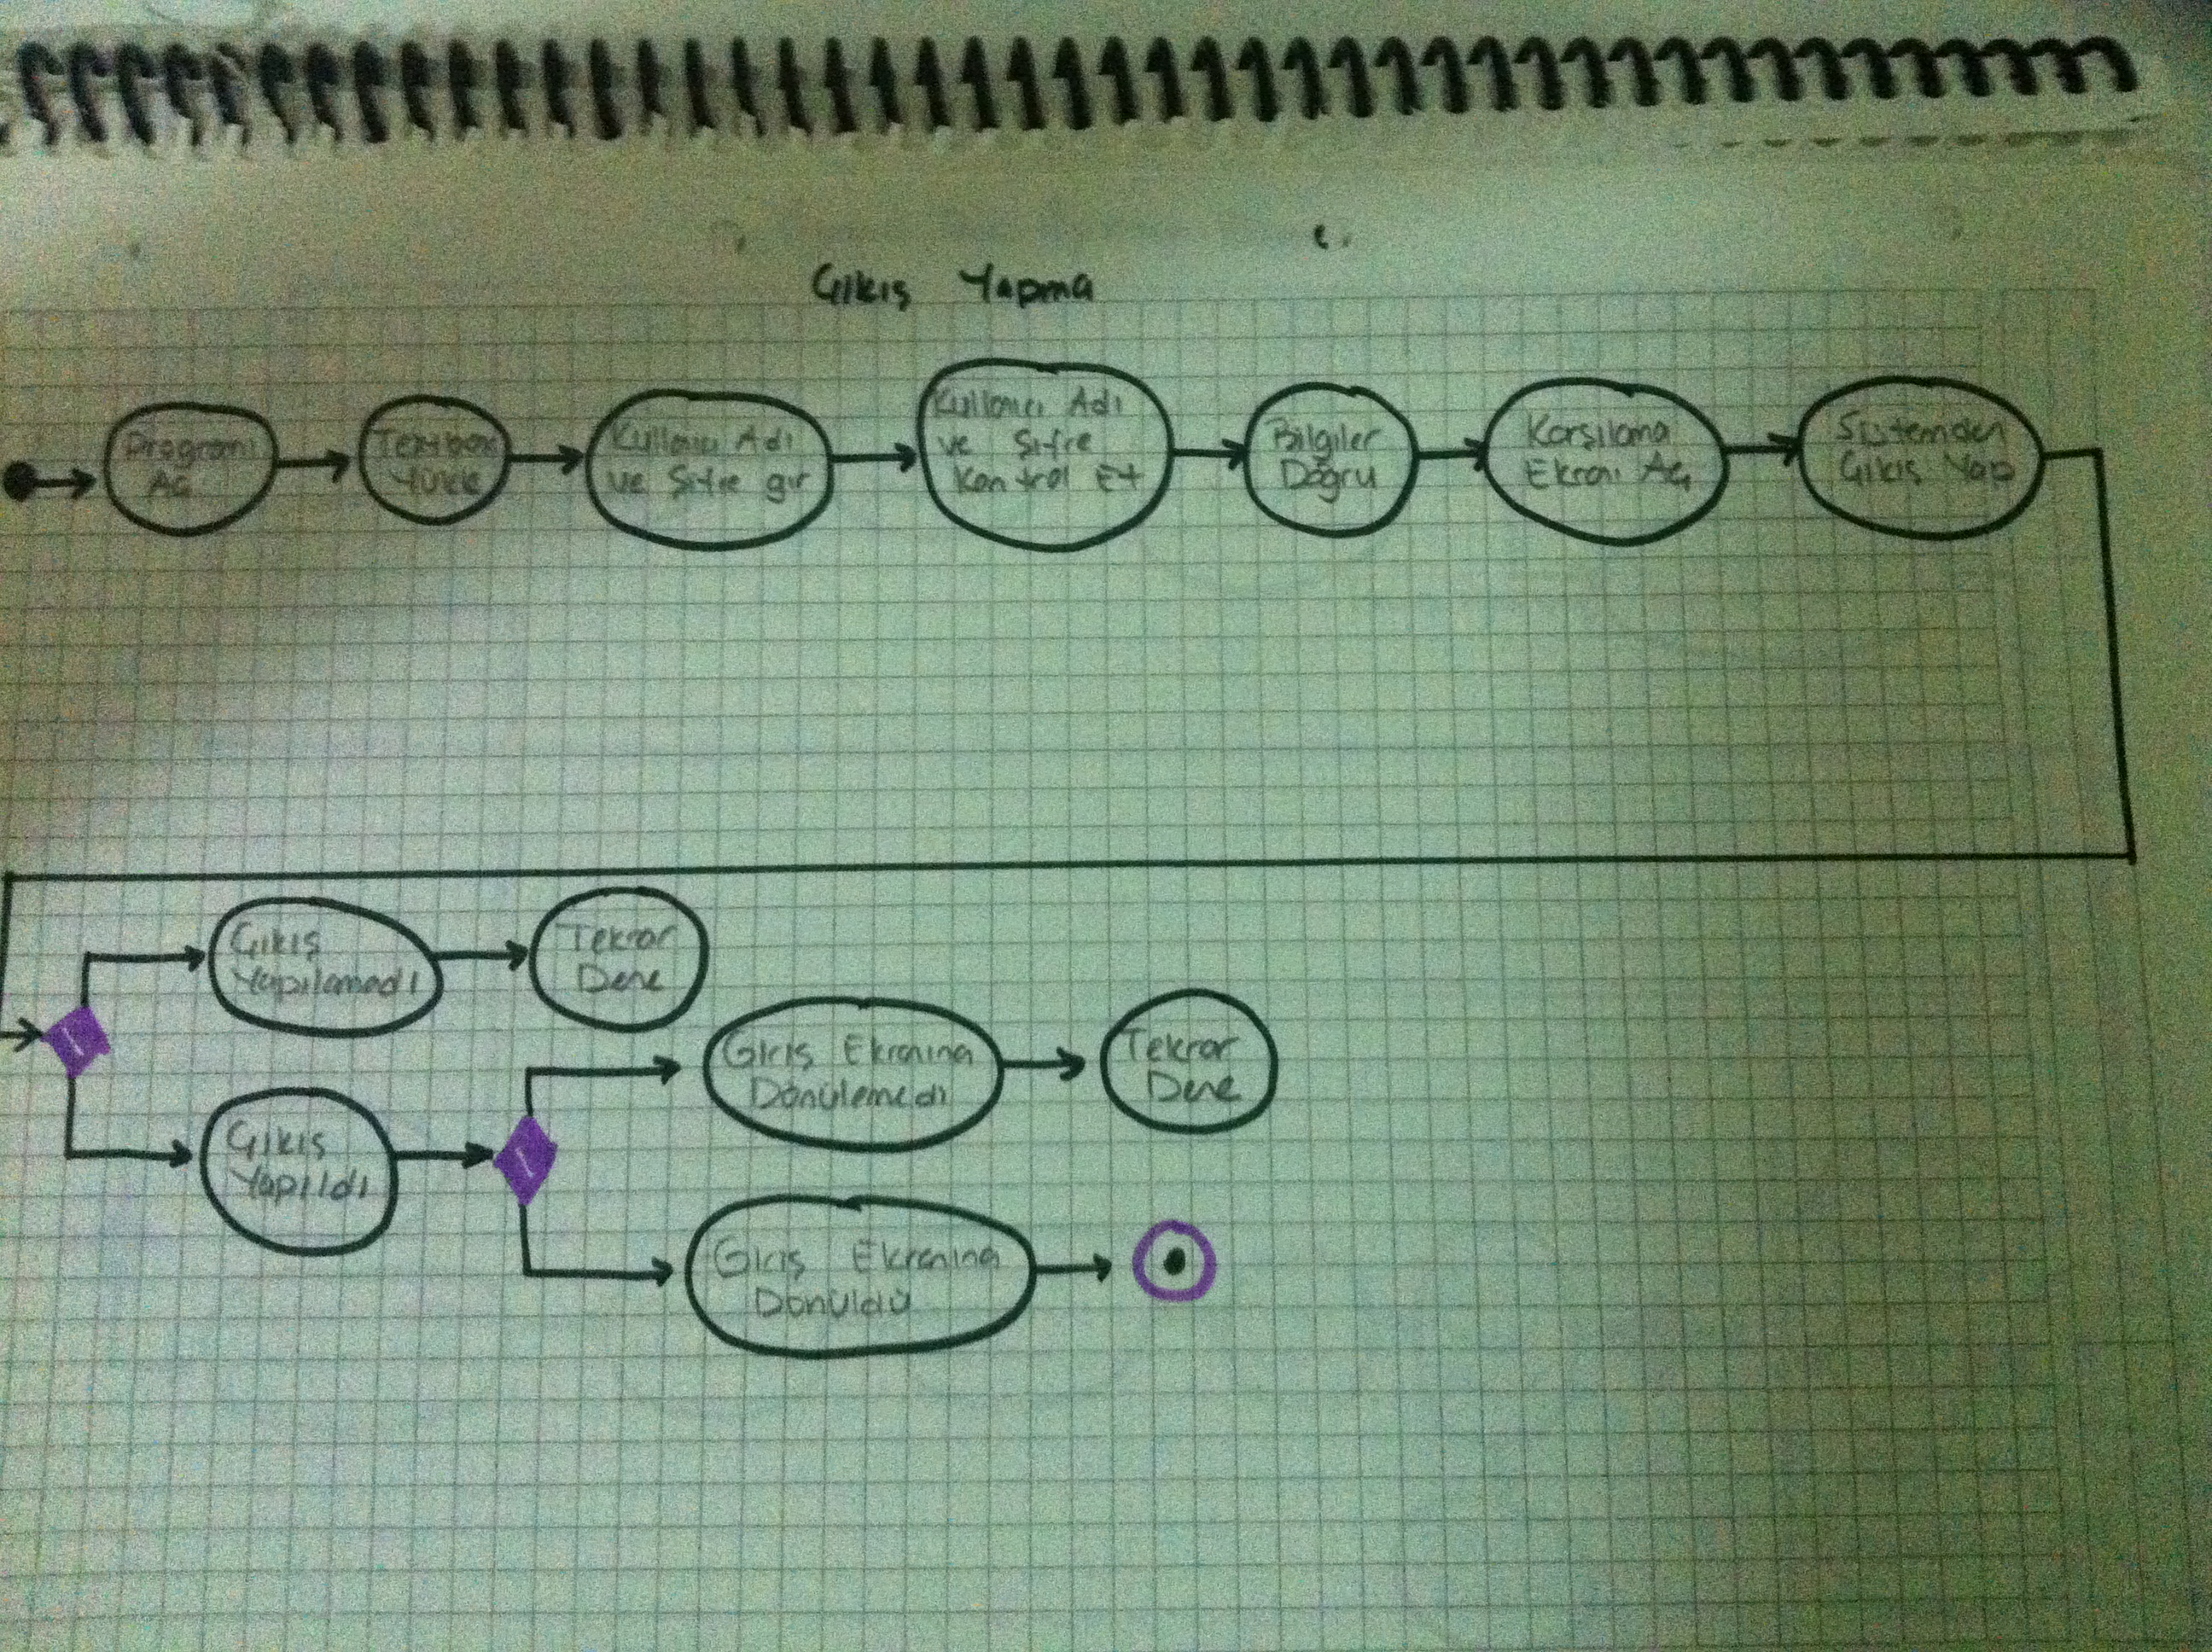 Çıkış Yapma
Programı
Aç
Textbox
Yükle
Kullanıcı Adı
ve Şifre gir
Kullanıcı Adı
ve Şifre
Kontrol Et
Bilgiler
Doğru
Karşılama
Ekranı Aç
Sistemden
Çıkış Yap
Çıkış
Yapılamadı
Tekrar
Dene
Giriş Ekranına
Dönülemedi
Tekrar
Dene
Çıkış
Yapıldı
Giriş Ekranına
Dönüldü